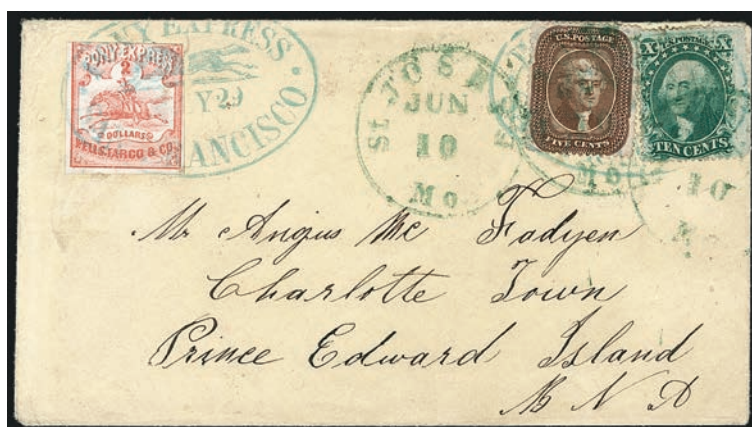 PONY EXPRESS
2
DOLLARS
WELLS, FARGO & CO.
PONY EXPRESS
Y 29
FRANCISCO
St JOSEPH
JUN
10
Mo.
U.S. POSTAGE
FIVE CENTS
X U.S. POSTAGE X
TEN CENTS
Mo
10
Mr Angus Mc Fadyen
Charlotte Town
Prince Edward Island
B N A